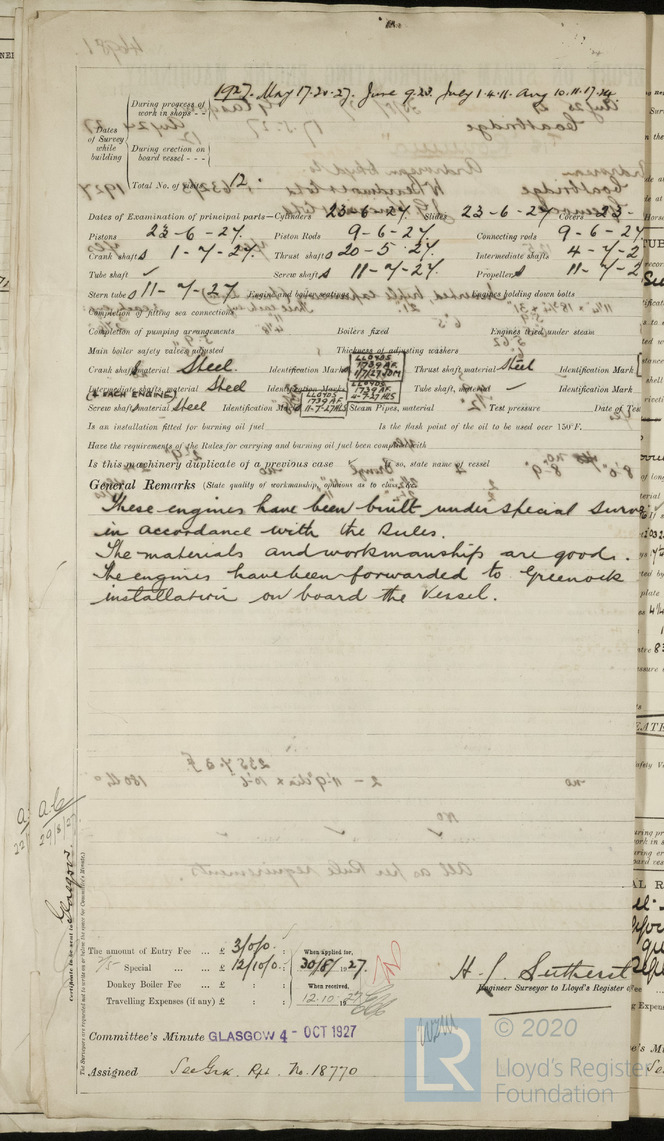 1927. May 17.20.27. June 9.23. July 1.4.11. Aug 10.11.17.24
During progress of work in shops - -
Dates of Survey while building
During erection on board vessel - - -
Total No. of visits 12.
Dates of Examination of principal parts—Cylinders 23-6-27. Slides 23-6-27 Covers 23-
Pistons 23-6-27. Piston Rods 9-6-27. Connecting rods 9-6-27
Crank shafts 1-7-27. Thrust shafts 20-5-27. Intermediate shafts 4-7-2
Tube shaft ✓ Screw shafts 11-7-27. Propellers 11-7-2
Stern tubes 11-7-27. Engine and boiler seatings Engines holding down bolts
Completion of fitting sea connections
Completion of pumping arrangements Boilers fixed Engines tried under steam
Main boiler safety valves adjusted Thickness of adjusting washers
Crank shaft material Steel. Identification Mark LLOYDS 1739 AF. Thrust shaft material Steel Identification Mark
Intermediate shafts, material Steel Identification Marks LLOYDS 1739 AF. 4-7-27 HLS Tube shaft, material ✓ Identification Mark
(4 EACH ENGINE)
Screw shaft, material Steel Identification Mark LLOYDS 1739 AF. 11-7-27 HLS Steam Pipes, material Test pressure Date of Tes
Is an installation fitted for burning oil fuel Is the flash point of the oil to be used over 150°F.
Have the requirements of the Rules for carrying and burning oil fuel been complied with
Is this machinery duplicate of a previous case no, state name of vessel
General Remarks (State quality of workmanship, opinions as to class, &c.
These engines have been built under special surve
in accordance with the Rules.
The materials and workmanship are good.
The engines have been forwarded to Greenock
installation on board the vessel.
Certificate to be sent to Glasgow.
The Surveyors are requested not to write on or below the space for Committee's Minute.
The amount of Entry Fee ... £ 3/0/0 : When applied for,
Special ... ... £ 12/10/0 : 30/8/1927.
Donkey Boiler Fee ... £ : : When received,
Travelling Expenses (if any) £ : : 12.10.1927
H. L. Sutherst
Engineer Surveyor to Lloyd's Register
Committee's Minute GLASGOW 4 - OCT 1927
Assigned See Grk. Rpt. No. 18770
© 2020
LR
Lloyd's Register
Foundation